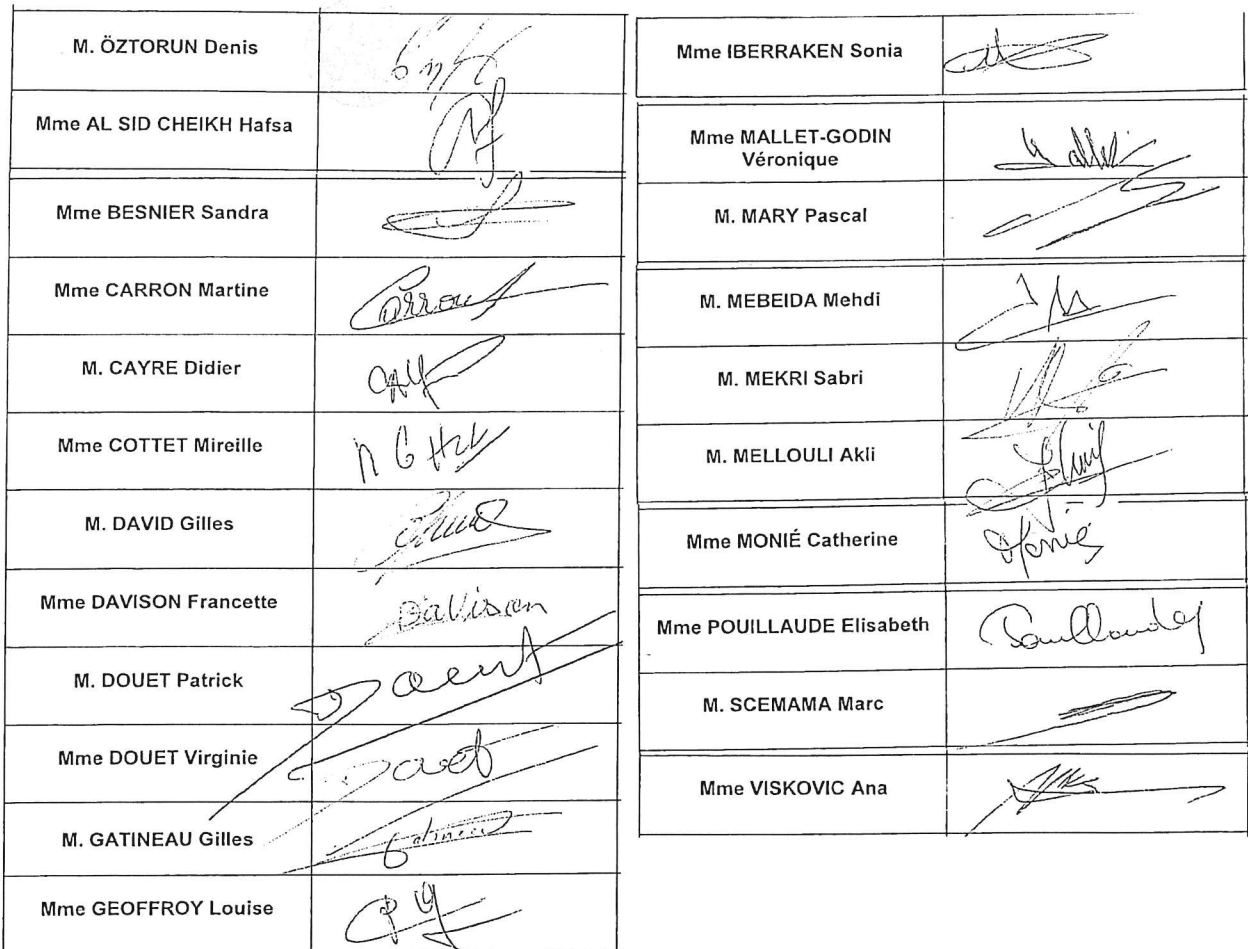 M. ÖZTORUN Denis
Mme AL SID CHEIKH Hafsa
Mme BESNIER Sandra
Mme CARRON Martine
Carron
M. CAYRE Didier
Mme COTTET Mireille
M. DAVID Gilles
Mme DAVISON Francette
Davison
M. DOUET Patrick
Mme DOUET Virginie
Douet
M. GATINEAU Gilles
Mme GEOFFROY Louise
Mme IBERRAKEN Sonia
Mme MALLET-GODIN
Véronique
M. MARY Pascal
M. MEBEIDA Mehdi
M. MEKRI Sabri
M. MELLOULI Akli
Mme MONIÉ Catherine
Monié
Mme POUILLAUDE Elisabeth
Pouillaude
M. SCEMAMA Marc
Mme VISKOVIC Ana